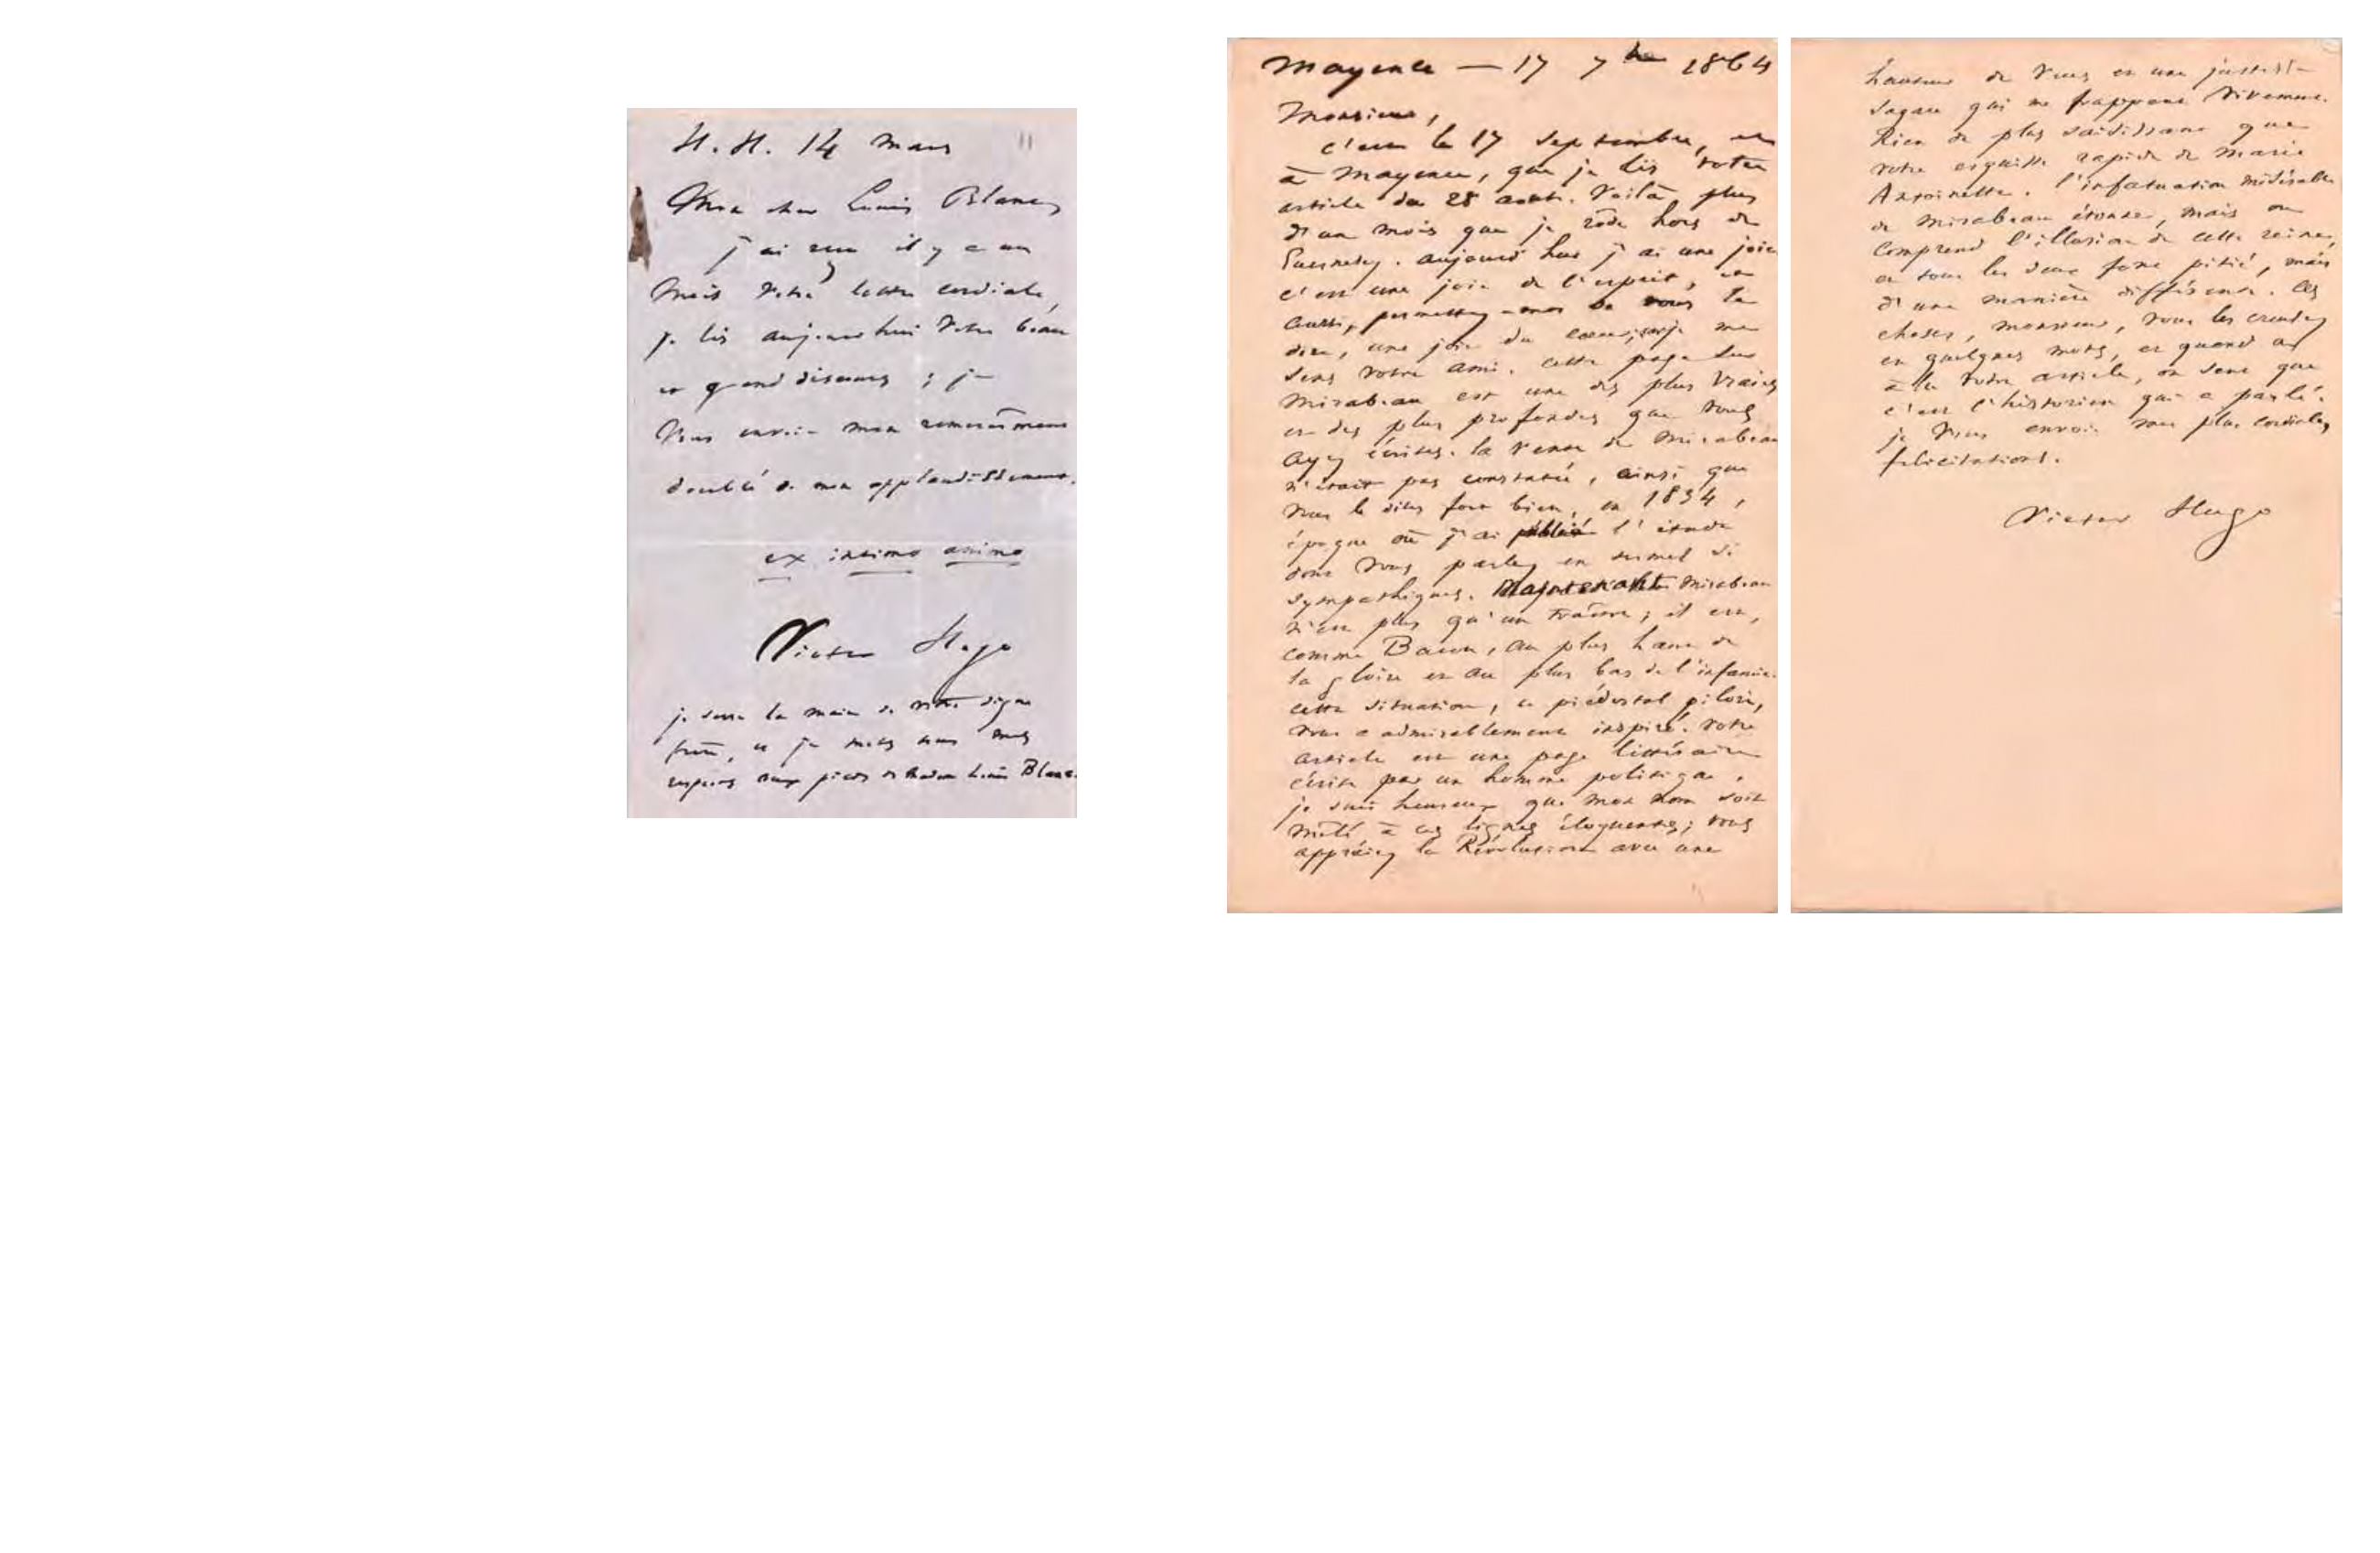 H. H. 14 mars
11
Mon cher Louis Blanc,
j'ai reçu il y a un
mois votre lettre cordiale,
je lis aujourd'hui votre beau
et grand discours ; je
vous envoie mon remerciement
doublé de mon applaudissement.
ex intimo animo
Victor Hugo
je serre la main de votre digne
frère, et je mets tous mes
respects aux pieds de Madame Louis Blanc.
Mayence — 17 7bre 1864
Monsieur,
c'est le 17 septembre, et
à Mayence, que je lis votre
article du 28 août. Voilà plus
d'un mois que je rôde hors de
Guernesey. aujourd'hui j'ai une joie
c'est une joie de l'esprit, et
aussi, permettez-moi de vous le
dire, une joie du coeur, car je me
sens votre ami. cette page sur
Mirabeau est une des plus vraies
et des plus profondes que vous
ayez écrites. la vente de Mirabeau
n'était pas constatée, ainsi que
vous le dites fort bien, en 1834,
époque où j'ai publié l'étude
dont vous parlez en termes si
sympathiques. Maintenant Mirabeau
n'est plus qu'un traître ; il est,
comme Bacon, au plus haut de
la gloire et au plus bas de l'infamie.
cette situation, ce piédestal pilori,
vous a admirablement inspiré. votre
article est une page littéraire
écrite par un homme politique.
je suis heureux que mon nom soit
mêlé à ces lignes éloquentes ; vous
appréciez la Révolution avec une
hauteur de vues et une justesse
sagace qui me frappent vivement.
Rien de plus saisissant que
votre esquisse rapide de Marie
Antoinette. l'infatuation misérable
de Mirabeau étonne, mais on
comprend l'illusion de cette reine,
et tous les deux font pitié, mais
d'une manière différente. Ces
choses, monsieur, vous les creusez
en quelques mots, et quand on
a lu votre article, on sent que
c'est l'historien qui a parlé.
je vous envoie mes plus cordiales
félicitations.
Victor Hugo